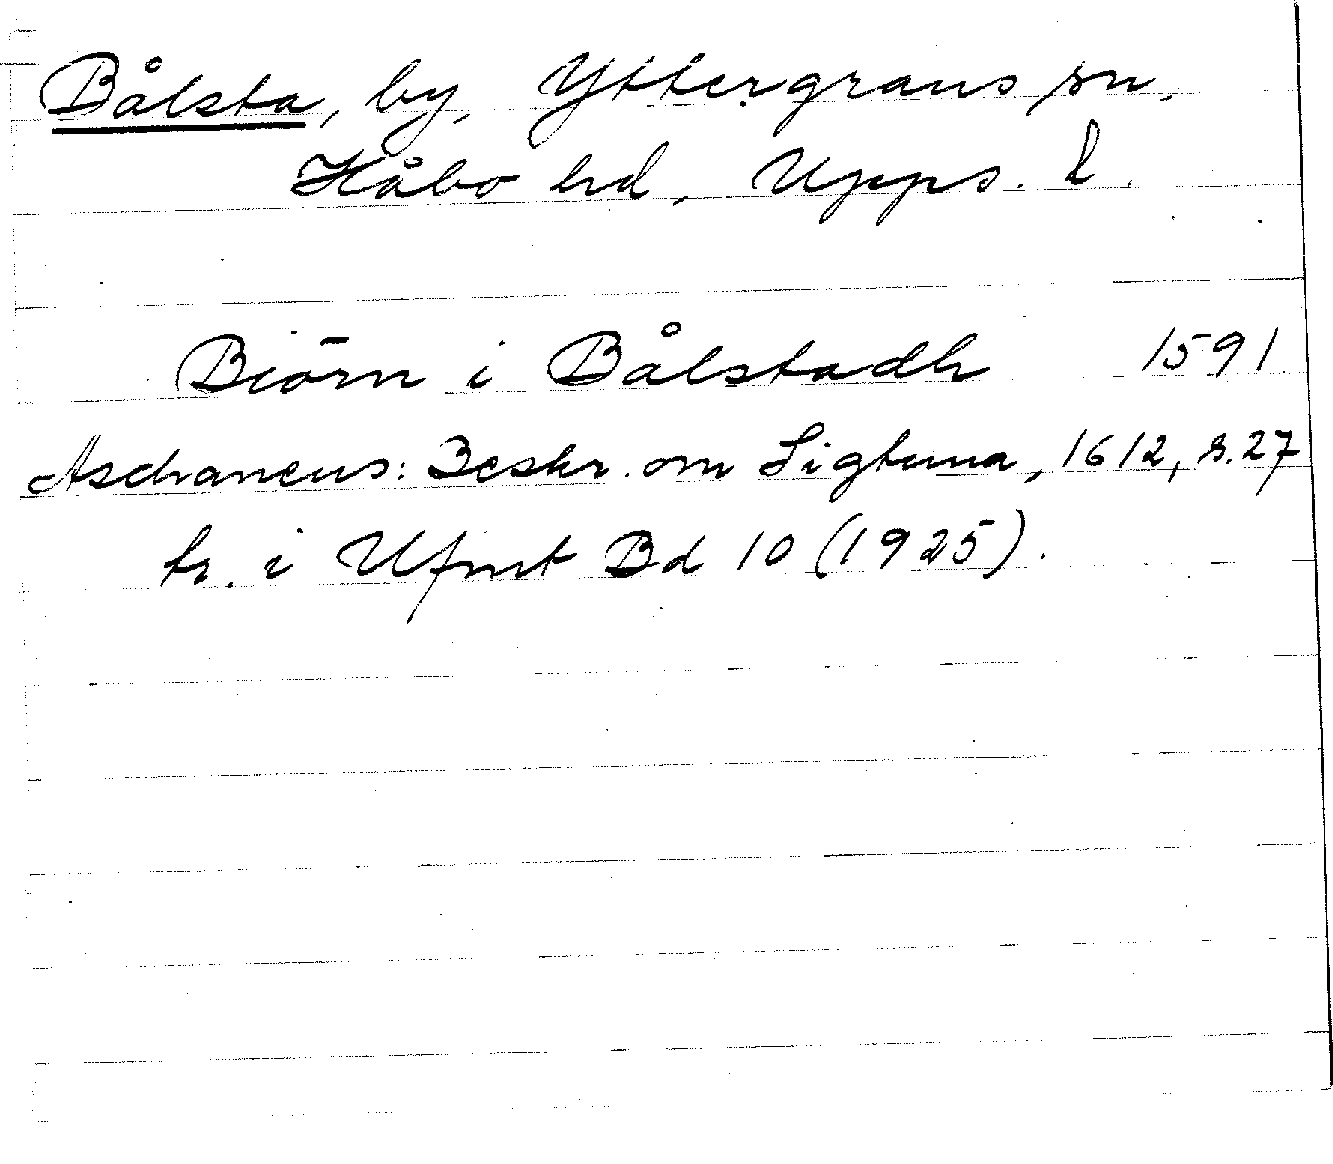 Bålsta, by, Yttergrans sn,
Håbo hd, Upps. l.
Biörn i Bålstadh 1591
Aschaneus: Beskr. om Sigtuna, 1612, s. 27
tr. i Ufmt Bd 10 (1925).